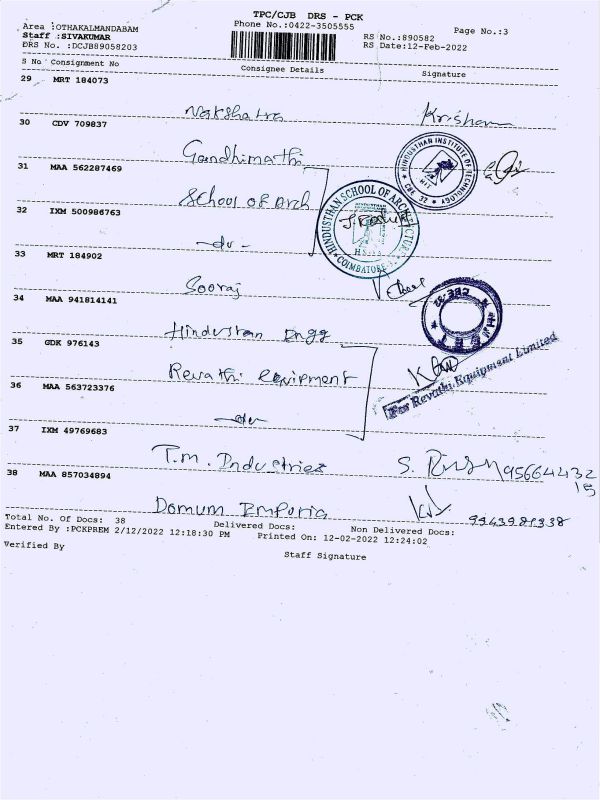 TPC/CJB DRS - PCK
Area :OTHAKALMANDABAM Phone No.:0422-3505555 Page No.:3
Staff :SIVAKUMAR RS No.:890582
DRS No. :DCJB89058203 RS Date:12-Feb-2022
S No Consignment No Consignee Details Signature
29 MRT 184073
Nakshatra Krishan
30 CDV 709837
Gandhimathi
31 MAA 562287469
HINDUSTHAN INSTITUTE OF TECHNOLOGY
HIT
CBE 32
School of Arch
HINDUSTHAN SCHOOL OF ARCHITECTURE
COIMBATORE
32 IXM 500986763
-do-
33 MRT 184902
Sooraj
34 MAA 941814141
Hindustan Engg
35 GDK 976143
Revathi Equipment
For Revathi Equipment Limited
36 MAA 563723376
-do-
37 IXM 49769683
T.m. Industries 95664432
15
38 MAA 857034894
Domum Emporia 9943981338
Total No. Of Docs: 38 Delivered Docs: Non Delivered Docs:
Entered By :PCKPREM 2/12/2022 12:18:30 PM Printed On: 12-02-2022 12:24:02
Verified By Staff Signature